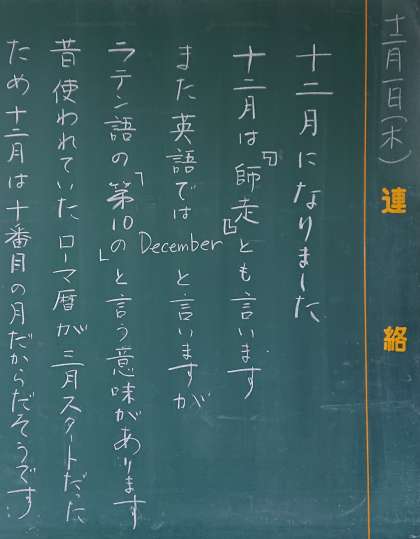 十二月一日(木)
連絡
十二月になりました
十二月は『師走』とも言います
また英語ではDecemberと言いますが
ラテン語の「第10の」と言う意味があります
昔使われていたローマ暦が三月スタートだった
ため十二月は十番目の月だからだそうです